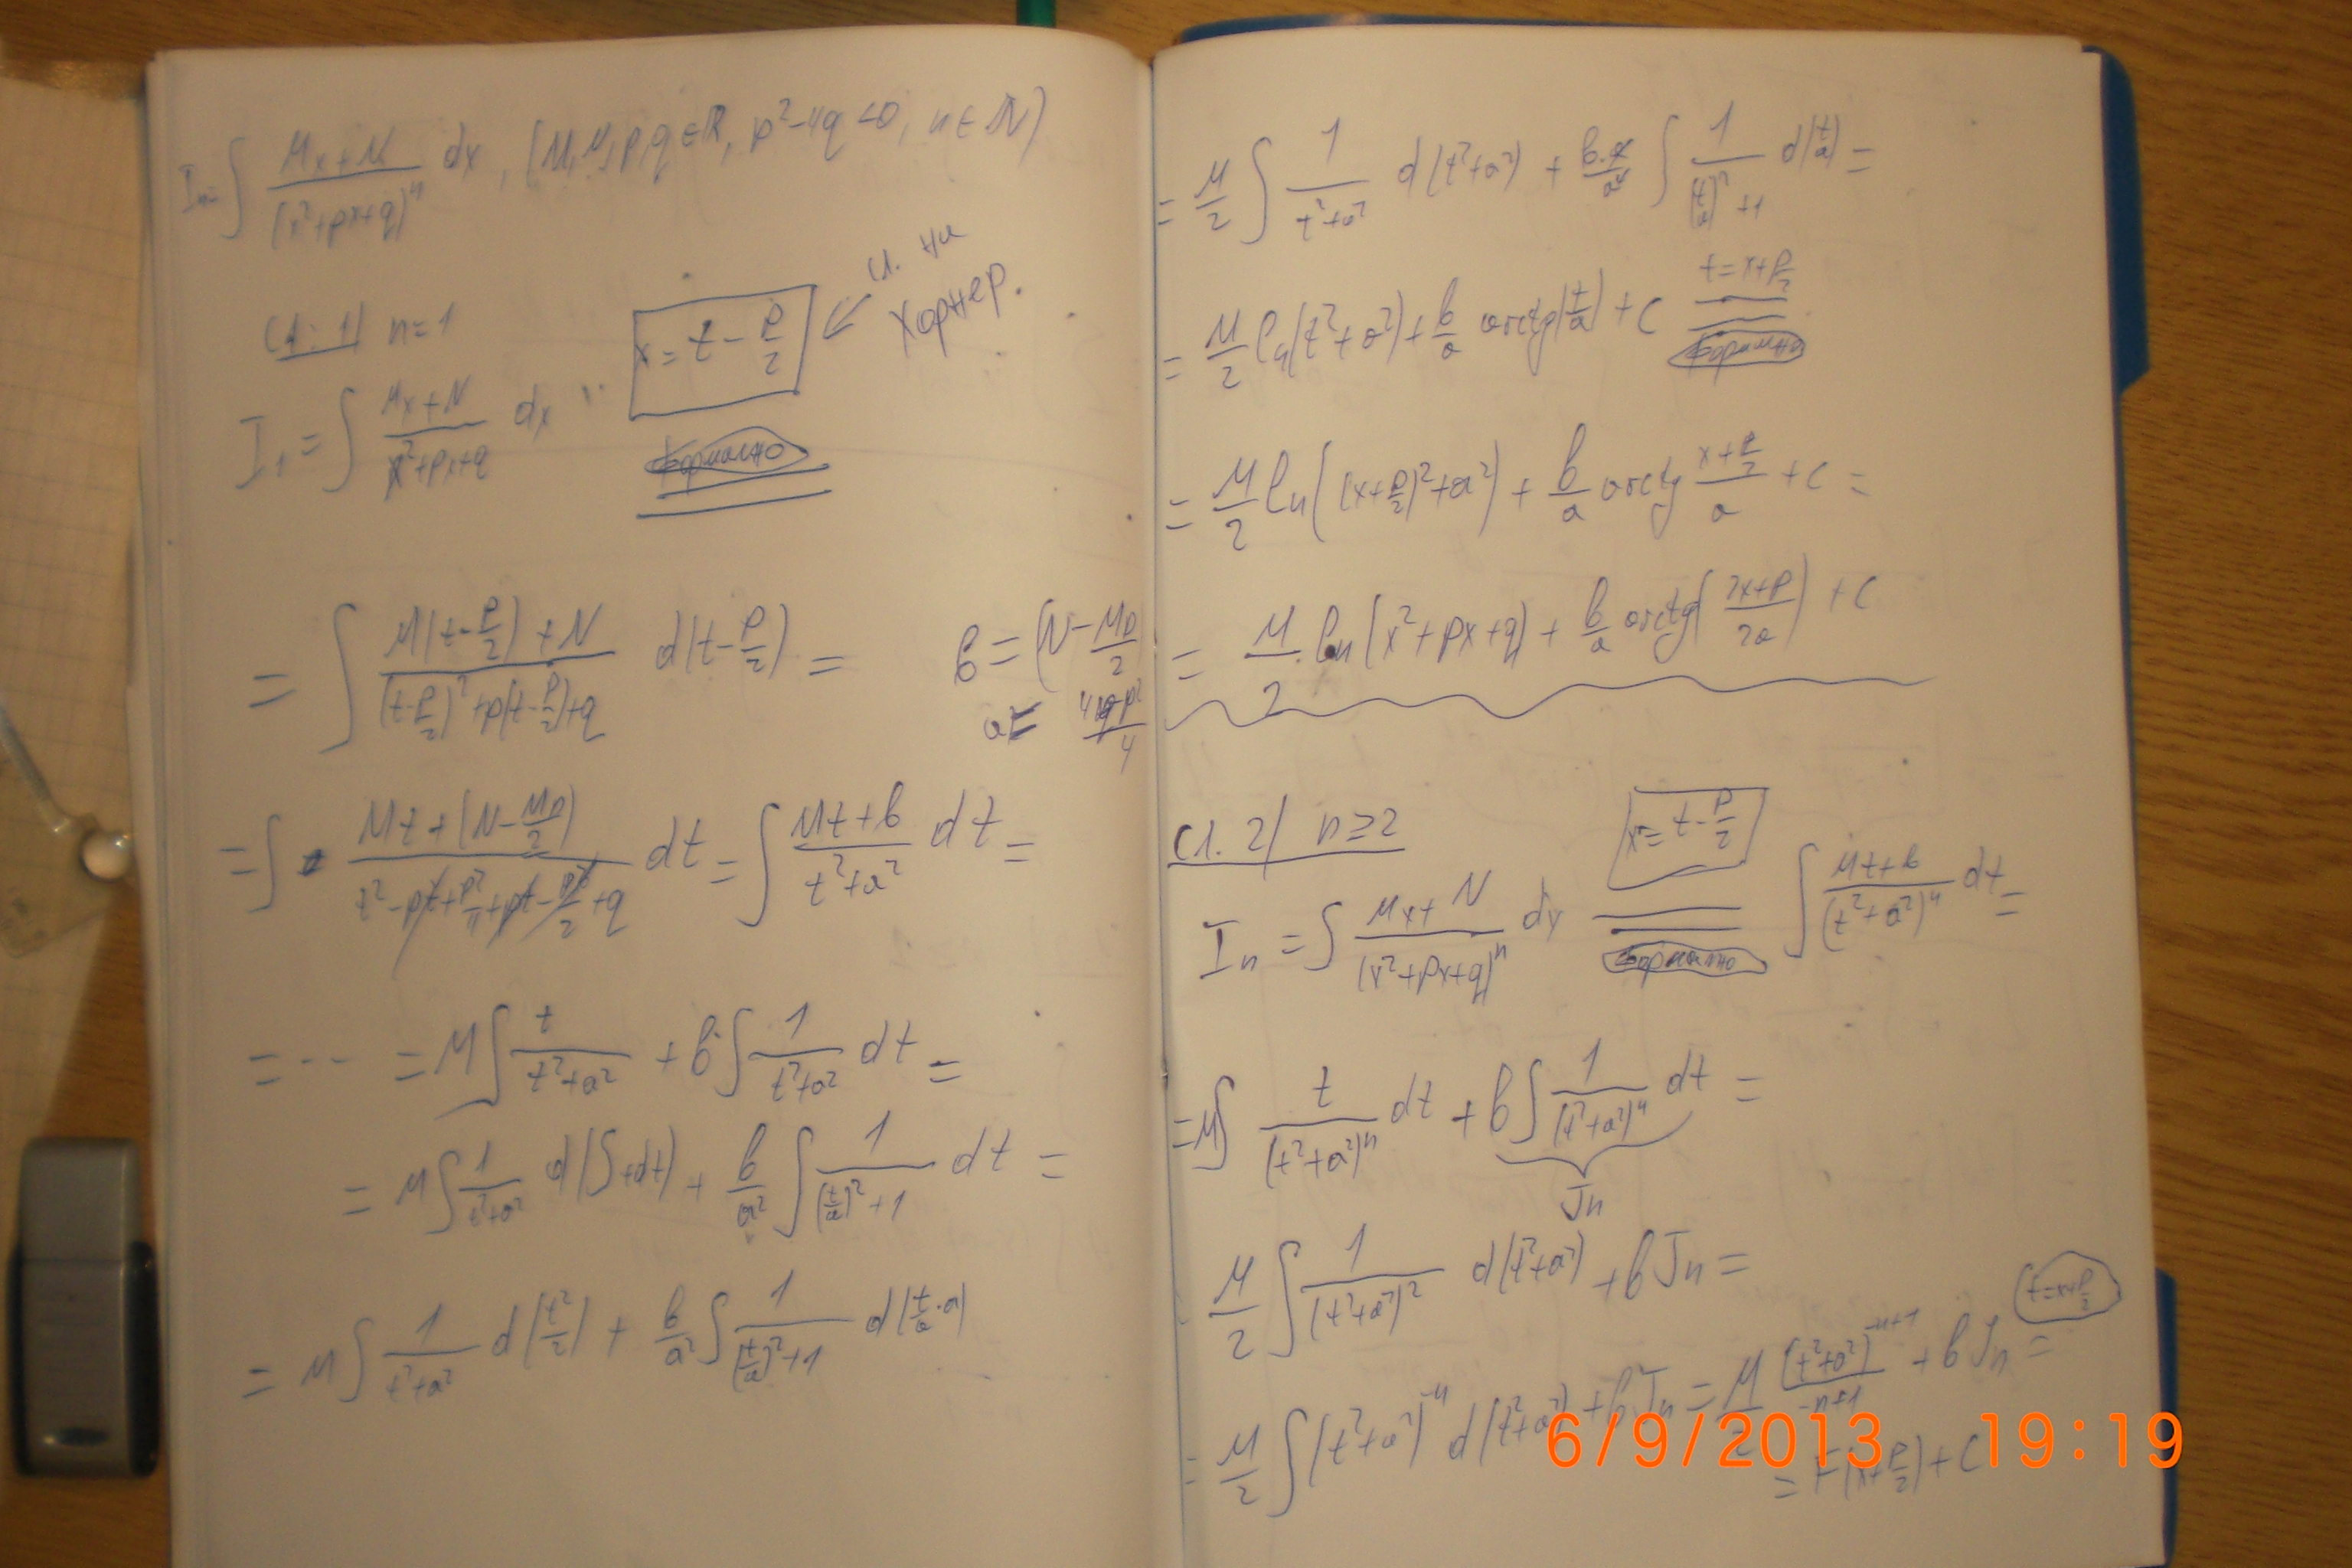 Iₙ = ∫ (Mx+N)/(x²+px+q)ⁿ dx, (M, N, p, q ∈ ℝ, p²-4q <0, n ∈ N)
сл. на
Хорнер.
сл. 1) n=1
x = t - p/2
I₁ = ∫ (Mx+N)/(x²+px+q) dx
формално
= ∫ (M(t-p/2)+N)/((t-p/2)²+p(t-p/2)+q) d(t-p/2) =
b = (N - Mp/2
a² = (4q-p²)/4
= ∫ (Mt+(N-Mp/2))/(t²-pt+p²/4+pt-p²/2+q) dt = ∫ (Mt+b)/(t²+a²) dt =
= ... = M∫ t/(t²+a²) + b∫ 1/(t²+a²) dt =
= M∫ 1/(t²+a²) d(∫tdt) + b/a² ∫ 1/((t/a)²+1) dt =
= M∫ 1/(t²+a²) d(t²/2) + b/a² ∫ 1/((t/a)²+1) d(t/a·a)
= M/2 ∫ 1/(t²+a²) d(t²+a²) + b·a/a² ∫ 1/((t/a)²+1) d(t/a) =
t=x+p/2
= M/2 ln(t²+a²) + b/a arctg(t/a) + c
формално
= M/2 ln((x+p/2)²+a²) + b/a arctg (x+p/2)/a + c =
= M/2 ln(x²+px+q) + b/a arctg((2x+p)/2a) + c
сл. 2) n≥2
x = t - p/2
Iₙ = ∫ (Mx+N)/(x²+px+q)ⁿ dx
формално
∫ (Mt+b)/(t²+a²)ⁿ dt =
= M∫ t/(t²+a²)ⁿ dt + b∫ 1/(t²+a²)ⁿ dt =
Jₙ
= M/2 ∫ 1/(t²+a²)² d(t²+a²) + bJₙ =
t=x+p/2
= M/2 ∫ (t²+a²)⁻ⁿ d(t²+a²) + bJₙ = M/2 (t²+a²)⁻ⁿ⁺¹/(-n+1) + bJₙ =
= F(x+p/2) + C
6/9/2013 19:19